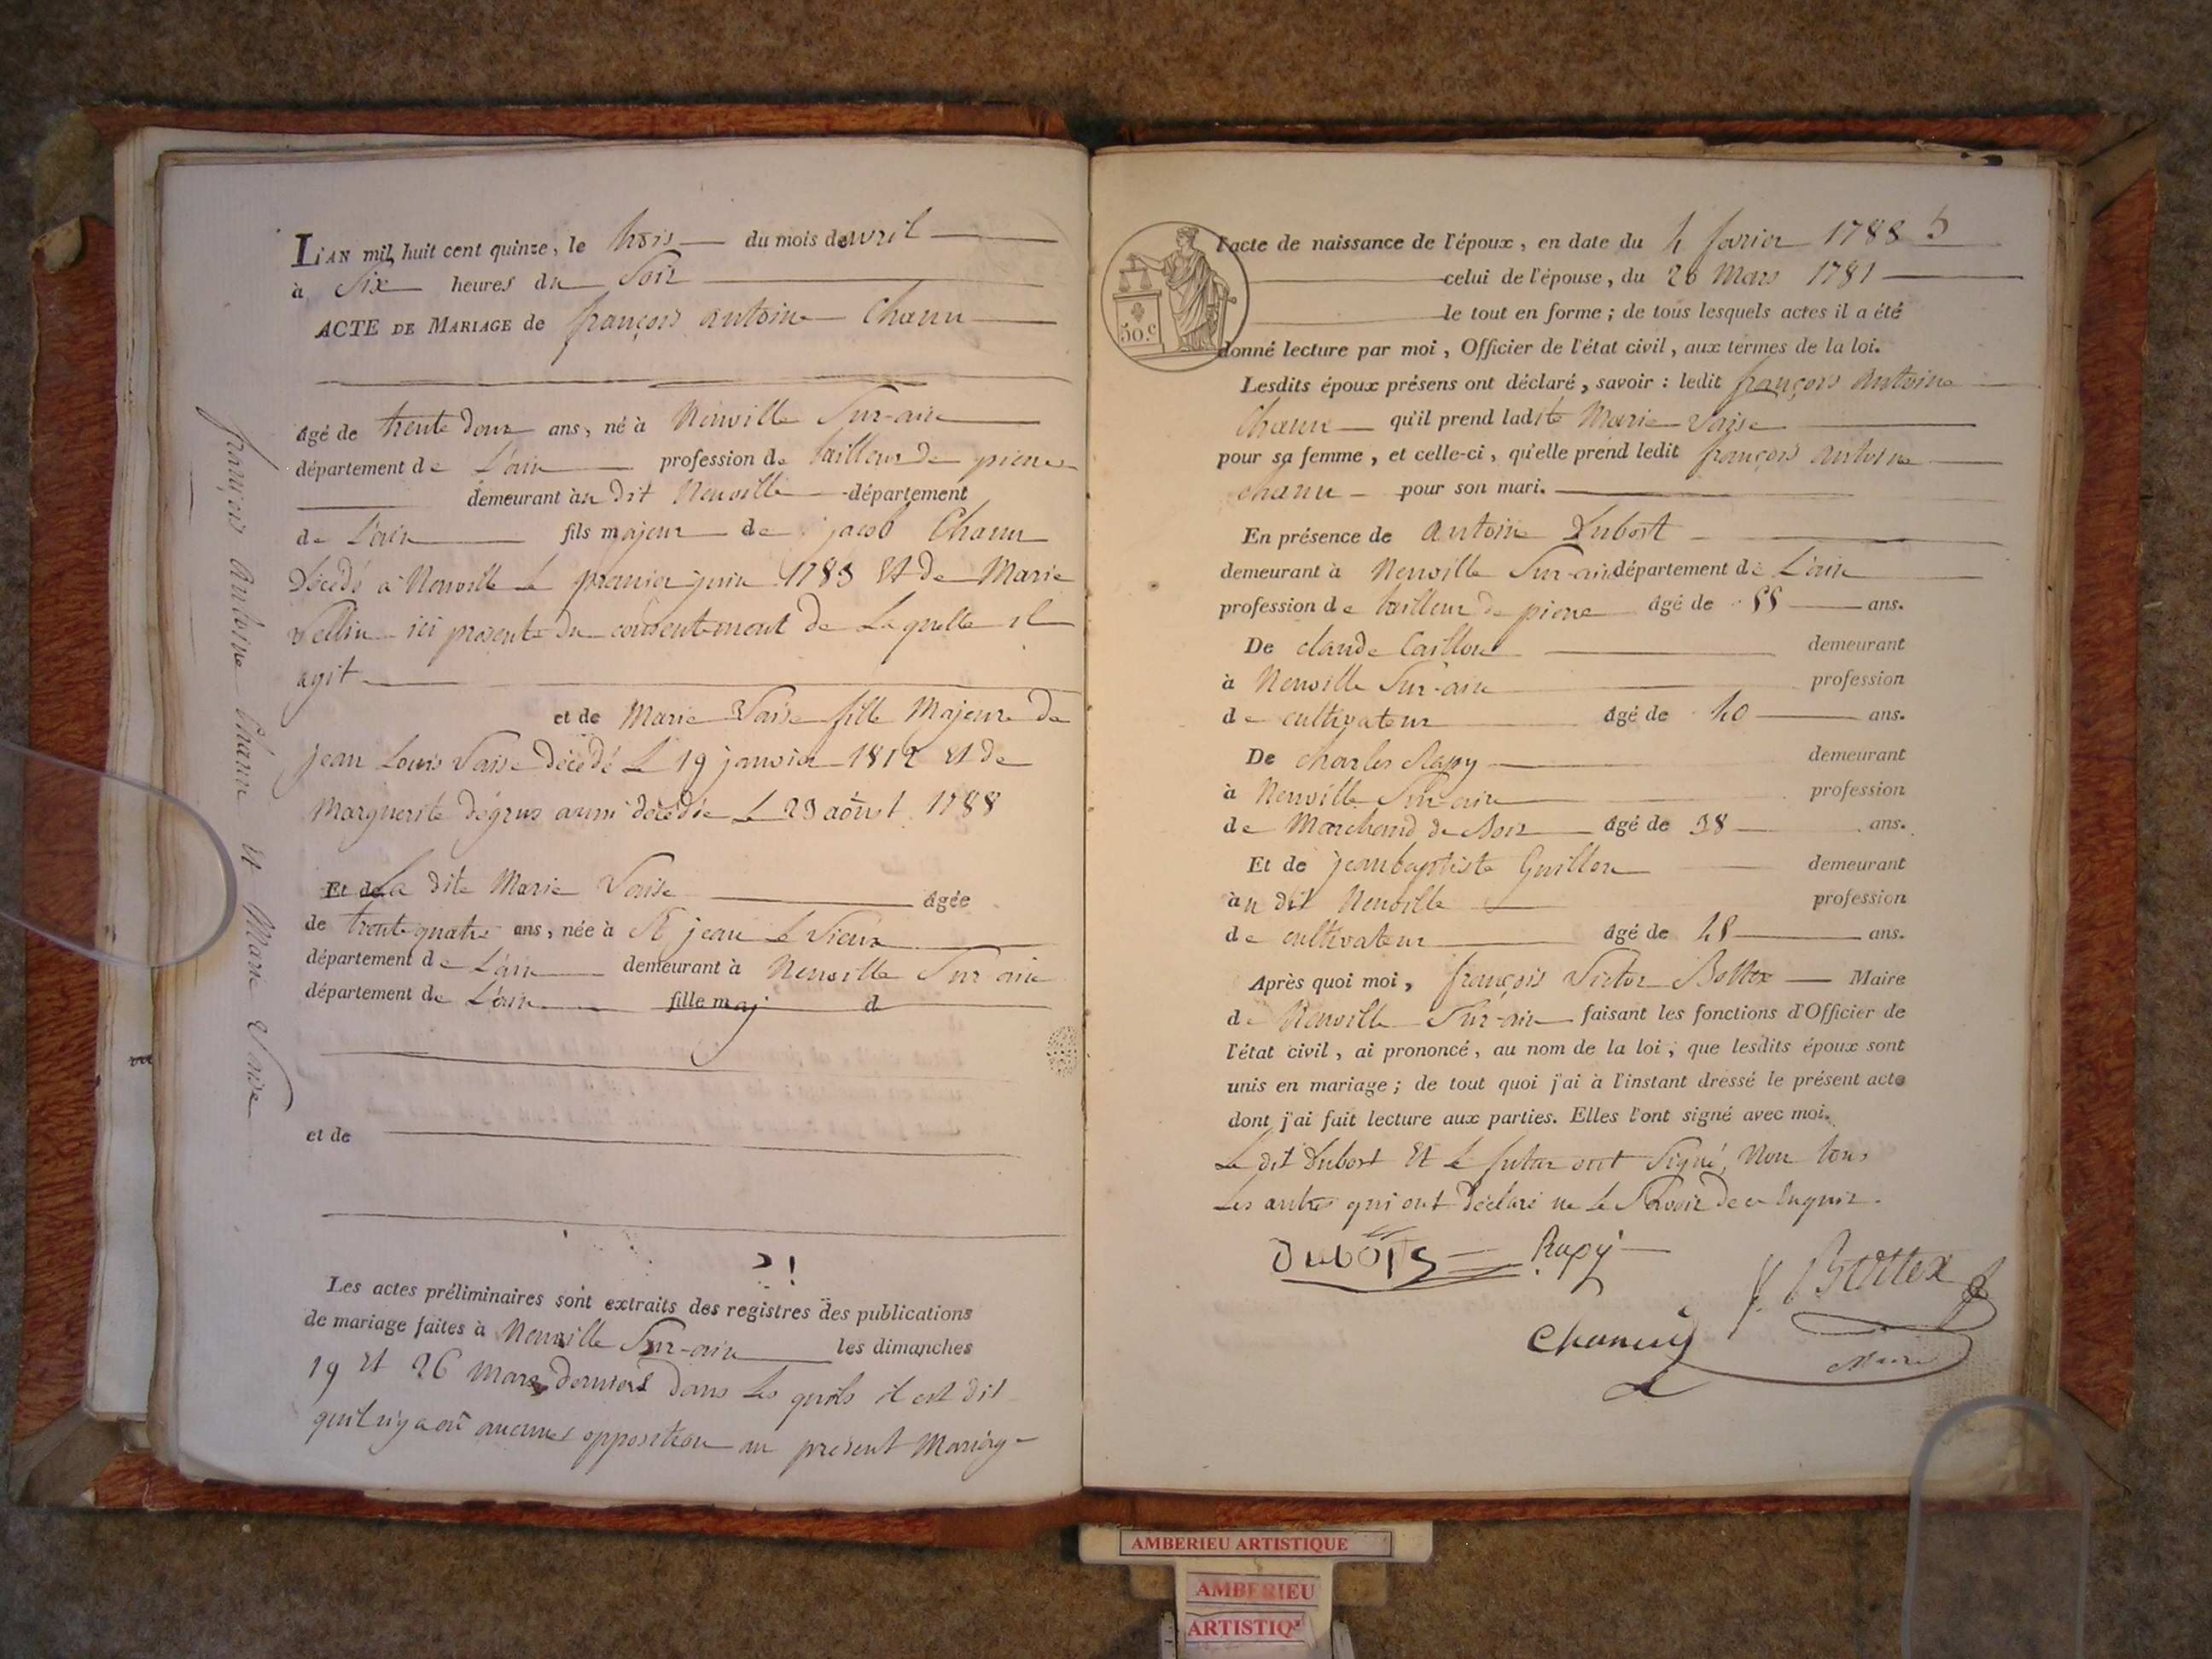 L'AN mil huit cent quinze, le trois du mois de avril
à Six heures du Soir
ACTE DE MARIAGE de françois antoine Chanu
âgé de trente deux ans, né à Neuville Sur-ain
département de L'ain profession de tailleur de pierre
demeurant au dit Neuville département
de L'ain fils majeur de jacob Chanu
Décédé à Neuville le premier juin 1783 Et de Marie
Vellin ici présente du consentement de Laquelle il
agit
et de Marie Vaise fille Majeure de
jean Louis Vaise décédé Le 19 janvier 1812 Et de
Marguerite dégrus aussi décédée Le 23 août 1788
Et de La dite Marie Vaise âgée
de trente quatre ans, née à St jean Le Vieux
département de L'ain demeurant à Neuville Sur ain
département de L'ain fille maj d
et de
Les actes préliminaires sont extraits des registres des publications
de mariage faites à Neuville Sur-ain les dimanches
19 Et 26 Mars derniers Dans Les quels il est dit
qu'il n'y a eû aucunes opposition au présent Mariage
françois Antoine Chanu et Marie Vaise
l'acte de naissance de l'époux, en date du 4 fevrier 1788 5
celui de l'épouse, du 26 Mars 1781
le tout en forme ; de tous lesquels actes il a été
donné lecture par moi, Officier de l'état civil, aux termes de la loi.
50.c
Lesdits époux présens ont déclaré, savoir : ledit françois Antoine
Chanu qu'il prend ladite Marie Vaise
pour sa femme, et celle-ci, qu'elle prend ledit françois antoine
chanu pour son mari.
En présence de Antoine Dubost
demeurant à Neuville Sur-ain département de L'ain
profession de tailleur de pierre âgé de 55 ans.
De claude Caillou demeurant
à Neuville Sur-ain profession
de cultivateur âgé de 40 ans.
De charles Rapy demeurant
à Neuville Sur-ain profession
de Marchand de Bois âgé de 38 ans.
Et de jean baptiste Guillon demeurant
au dit Neuville profession
de cultivateur âgé de 48 ans.
Après quoi moi, françois Victor Bottex Maire
de Neuville Sur-ain faisant les fonctions d'Officier de
l'état civil, ai prononcé, au nom de la loi, que lesdits époux sont
unis en mariage ; de tout quoi j'ai à l'instant dressé le présent acte
dont j'ai fait lecture aux parties. Elles l'ont signé avec moi.
Le dit Dubost Et le futur ont Signé, Non tous
Les autres qui ont déclaré ne Le Savoir de ce Enquis.
Rapy
Bottex
Chanu
Maire
AMBERIEU ARTISTIQUE
AMBERIEU
ARTISTIQ